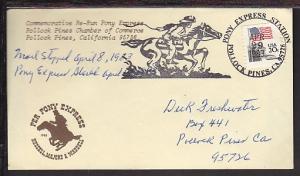 Commemorative Re-Run Pony Express
Pollock Pines Chamber of Commerce
Pollock Pines, California 95726
Mail Stopped April 8, 1983
Pony Express Station April
PONY EXPRESS STATION
POLLOCK PINES, CA 95726
APR
29
1983
USA
20c
PER PONY EXPRESS
RUSSELL, MAJORS & WADDELL
Dick Freshwater
Box 441
Pollock Pines Ca
95726